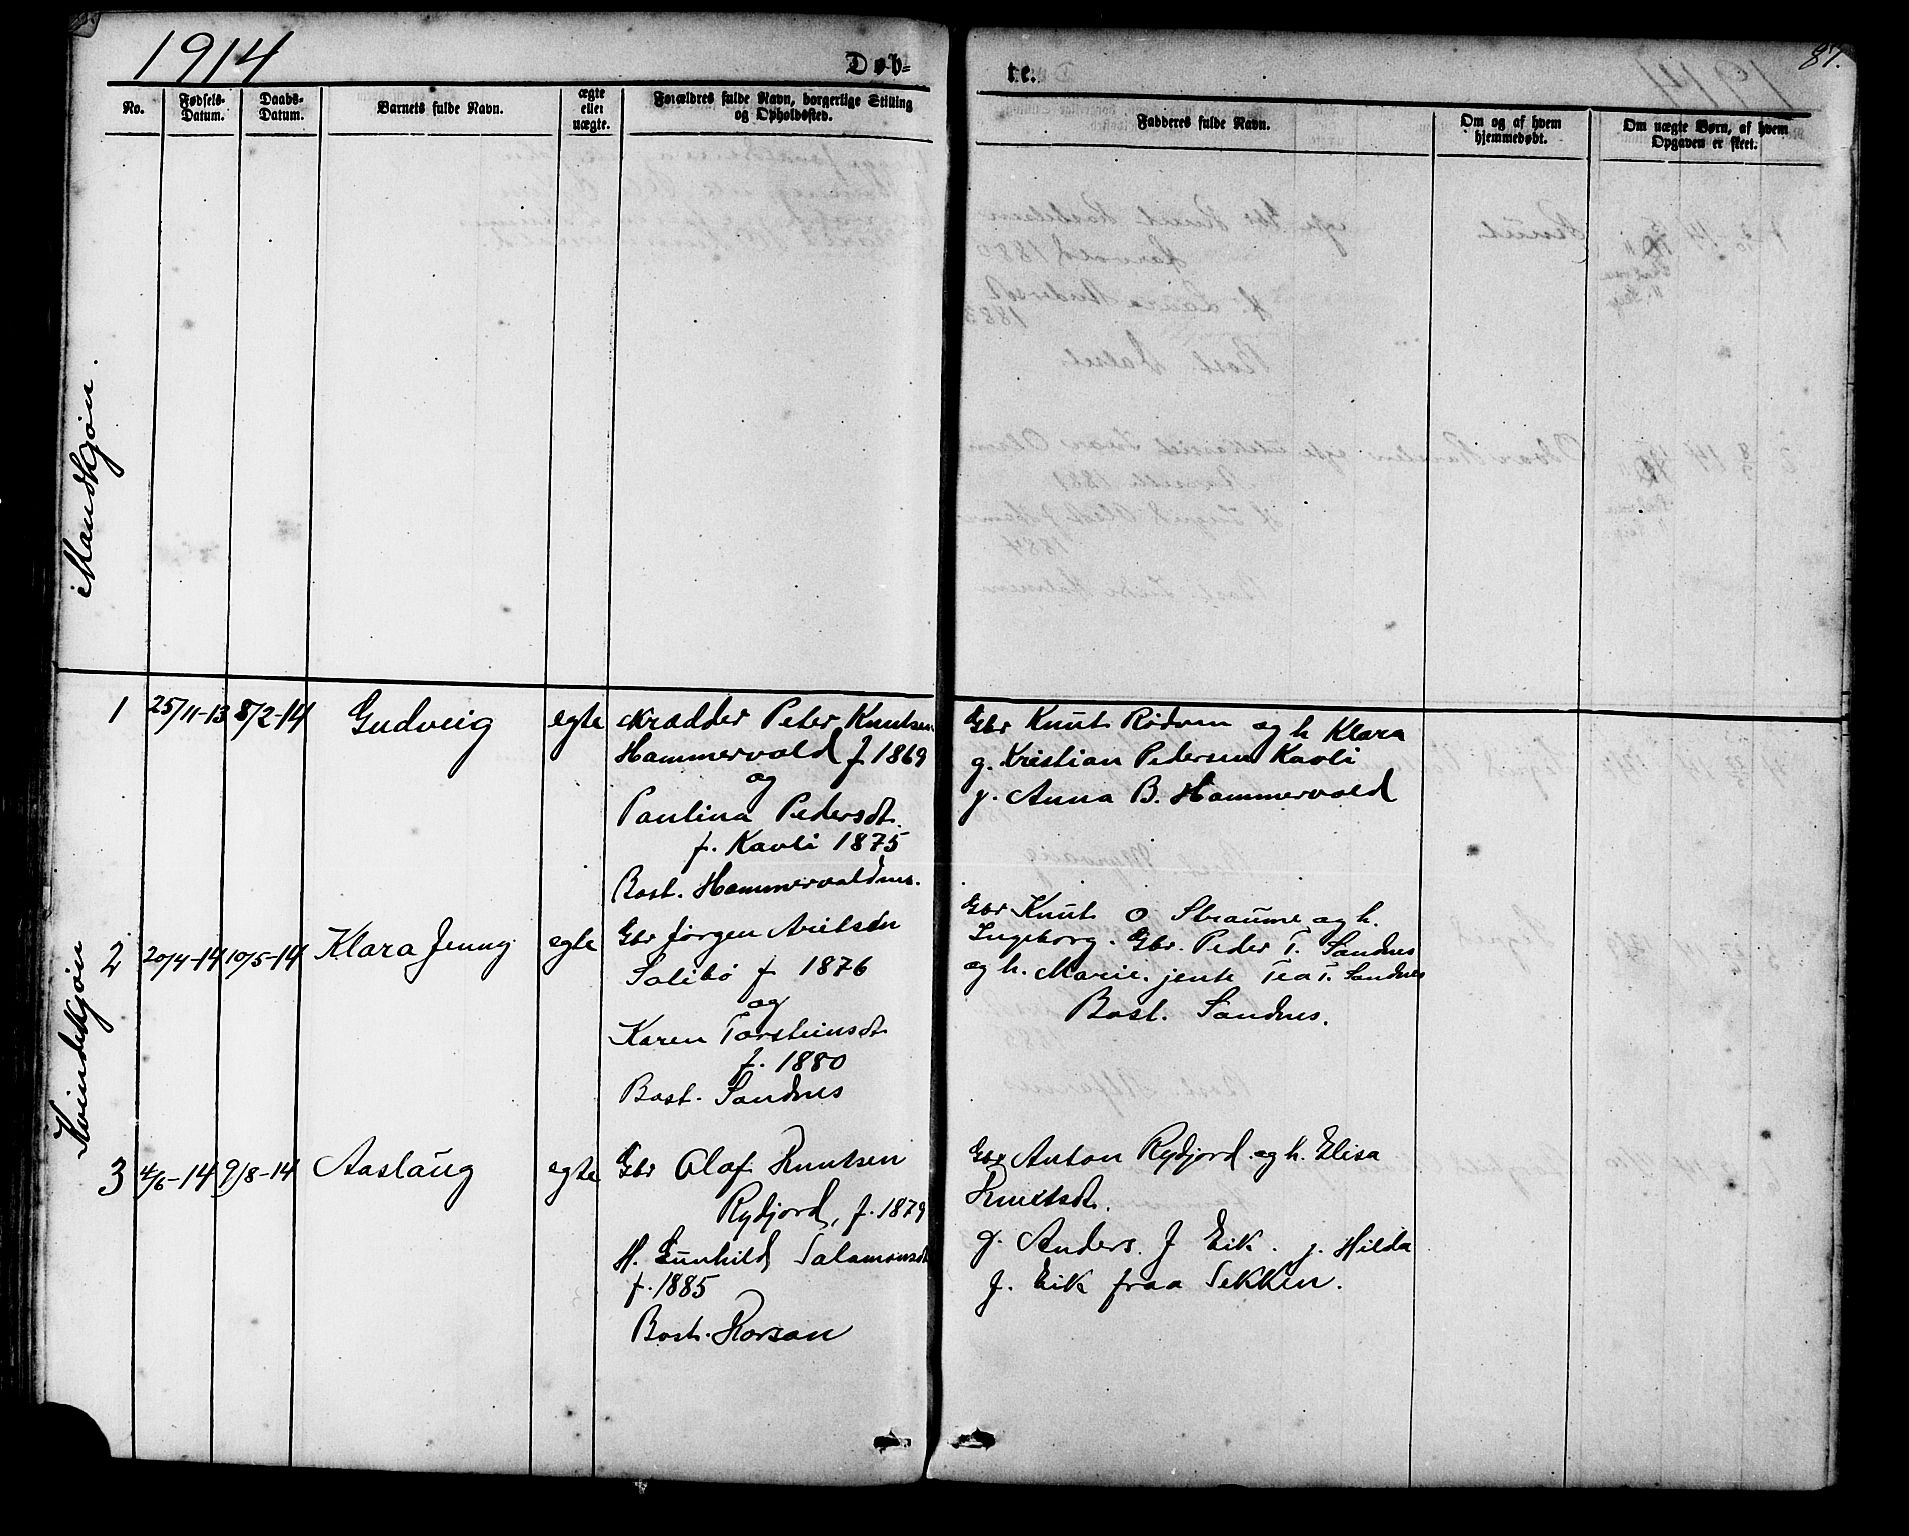 1914
Døb-
te.
87.
No.
Fødsels-
Datum.
Daabs-
Datum.
Barnets fulde Navn.
ægte
eller
uægte.
Forældres fulde Navn, borgerlige Stilling
og Opholdssted.
Fadderes fulde Navn.
Om og af hvem
hjemmedøbt.
Om uægte Børn, af hvem
Opgaven er skeet.
Mandkjøn.
Kvindekjøn
1 25/11-13 8/2-14 Gudveig egte skrædder Peter Knutsen
Hammervold f 1869
og
Paulina Pedersdt.
f. Kavli 1875
Bost. Hammervoldnes.
Gbr Knut Rødven og h Klara
g. Kristian Pedersen Kavli
p. Anna B. Hammervold
2 20/4-14 10/5-14 Klara Jenny egte Gbr Jørgen
Solibø f 1876
og
Karen Torsteinsdt
f. 1880
Bost. Sandnes
Gbr Knut O Straume og h.
Ingeborg. Gbr. Peder T. Sandnes
og h. Marie. jente Tea T. Sandnes
Bost. Sandnes.
3 4/6-14 9/8-14 Aaslaug egte Gbr Olaf Knutsen
Rydjord, f. 1879
H. Gunhild Salamonsdt
f. 1885
Bost. Horsan
Gbr Anton Rydjord og h. Elisa
Knutsdt.
g. Anders. J Eik. p. Hilda
J. Eik fraa Sekken.